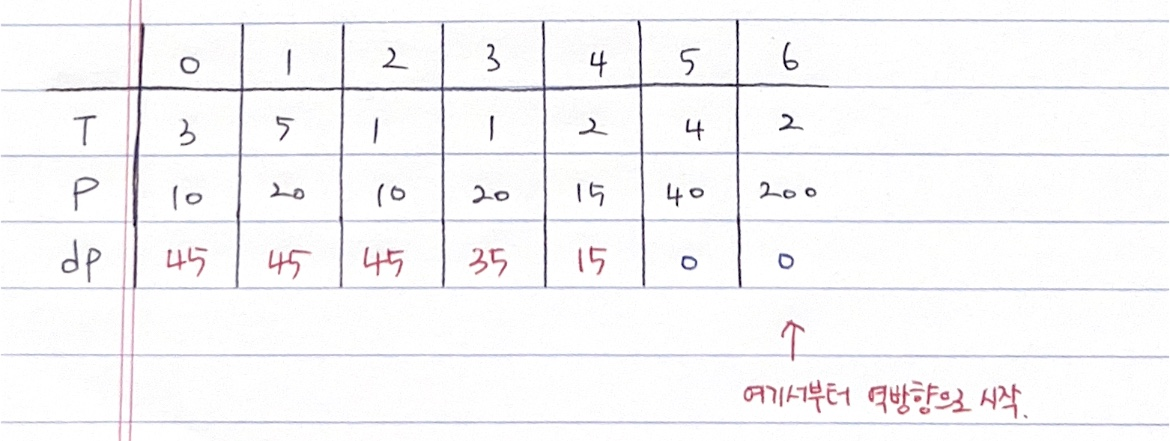 0 1 2 3 4 5 6
T 3 5 1 1 2 4 2
P 10 20 10 20 15 40 200
dp 45 45 45 35 15 0 0
↑
여기서부터 역방향으로 시작.